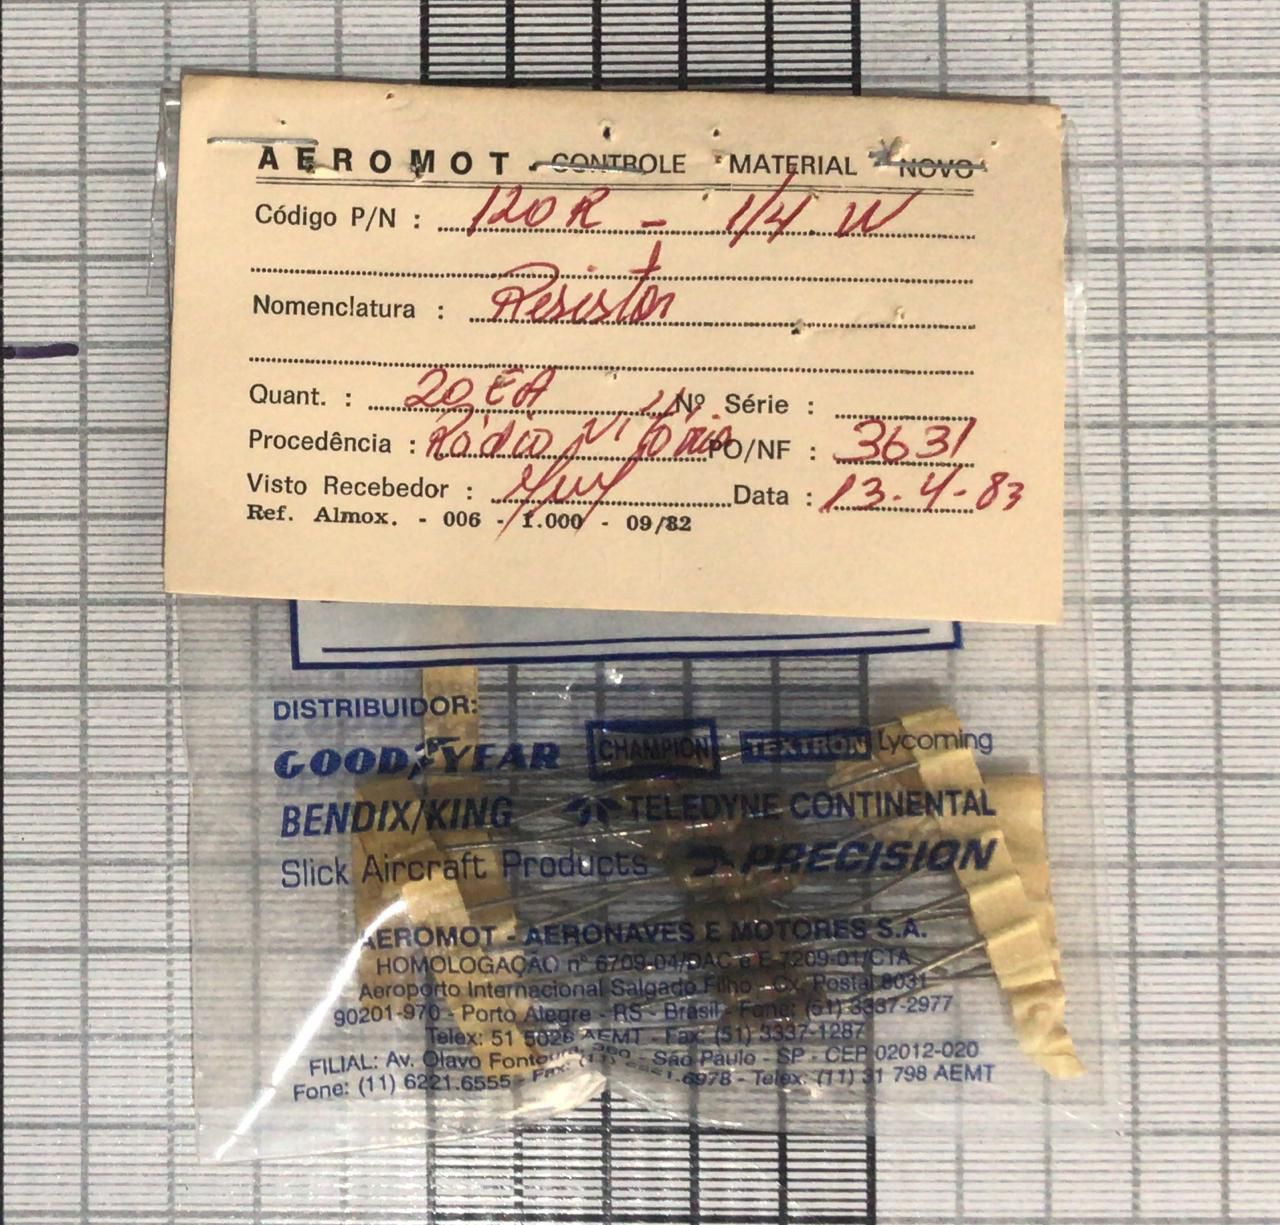 AEROMOT - CONTROLE MATERIAL NOVO
Código P/N : 120R - 1/4 W
Nomenclatura : Resistor
Quant. : 20 EA Nº Série :
Procedência : Rádio Vitória PO/NF : 3631
Visto Recebedor : Data : 13-4-83
Ref. Almox. - 006 - 1.000 - 09/82
DISTRIBUIDOR:
GOODYEAR CHAMPION TEXTRON Lycoming
BENDIX/KING TELEDYNE CONTINENTAL
Slick Aircraft Products PRECISION
AEROMOT - AERONAVES E MOTORES S.A.
HOMOLOGAÇÃO nº 6709-04/DAC e E-7209-01/CTA
Aeroporto Internacional Salgado Filho - Cx. Postal 8031
90201-970 - Porto Alegre - RS - Brasil - Fone: (51) 3337-2977
Telex: 51 5026 AEMT - Fax: (51) 3337-1287
FILIAL: Av. Olavo Fontoura, - São Paulo - SP - CEP 02012-020
Fone: (11) 6221.6555 - Fax: (11) - Telex: (11) 31 798 AEMT